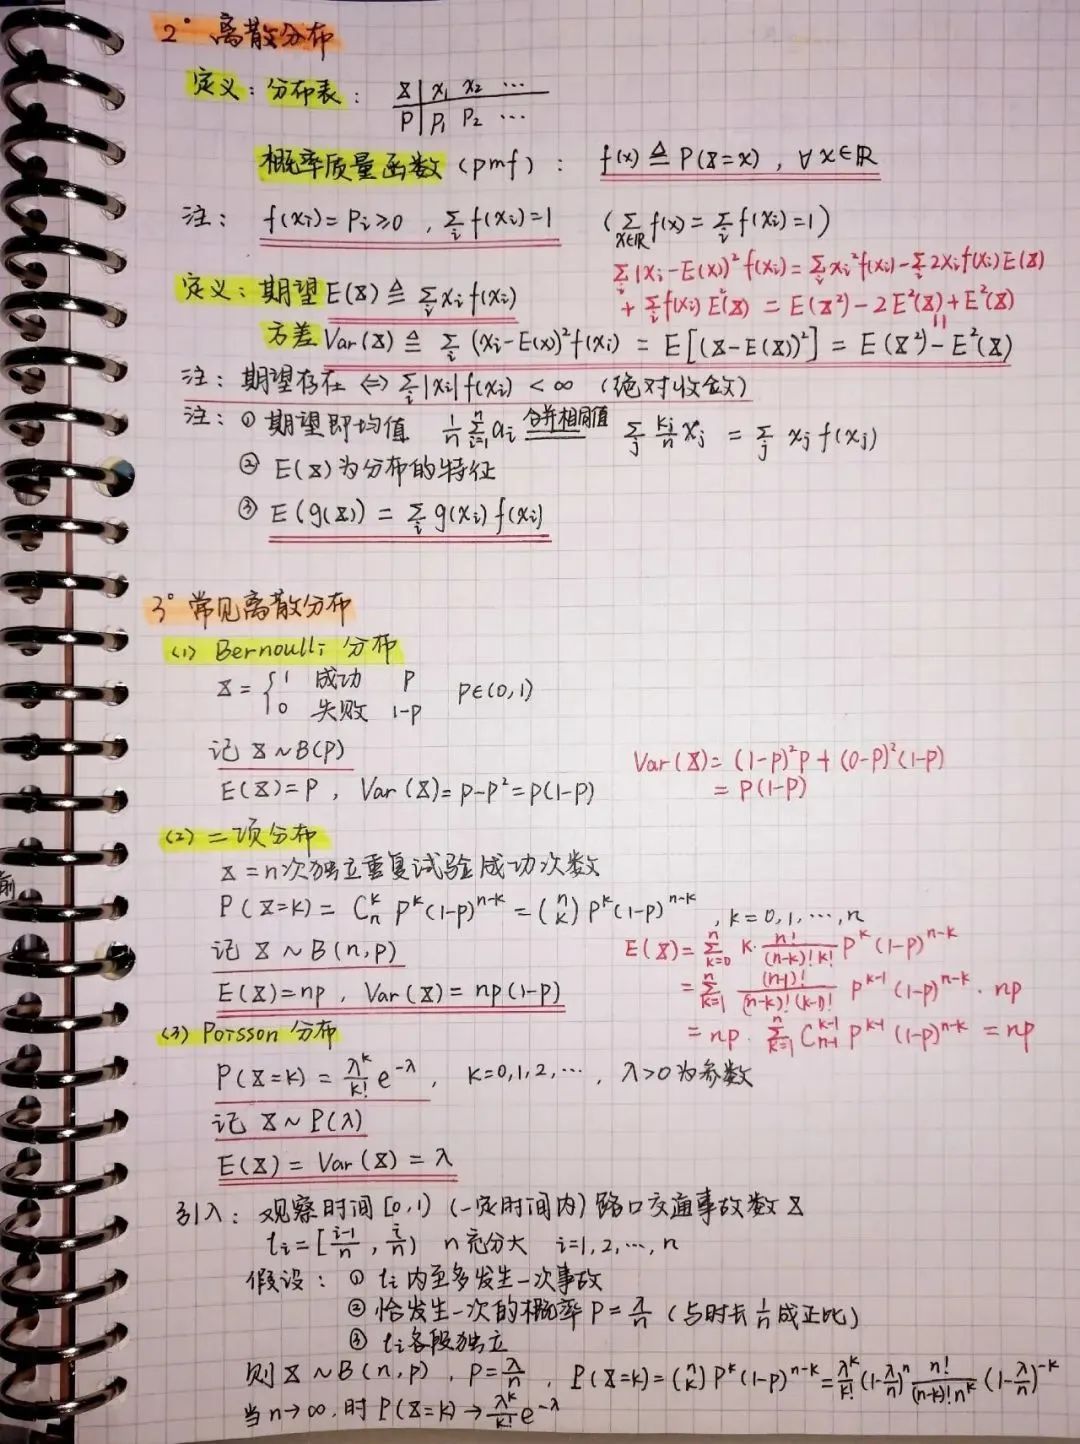 2° 离散分布
定义：分布表： X | x₁ x₂ ⋯
P | p₁ p₂ ⋯
概率质量函数 (pmf)： f(x) ≜ P(X=x), ∀x∈ℝ
注： f(xᵢ)=Pᵢ≥0, ∑ᵢ f(xᵢ)=1 (∑_{x∈ℝ} f(x)=∑ᵢ f(xᵢ)=1)
∑ᵢ |xᵢ-E(x)|² f(xᵢ)=∑ᵢ xᵢ² f(xᵢ)-∑ᵢ 2xᵢ f(xᵢ)E(X)
+ ∑ᵢ f(xᵢ) E²(X) = E(X²)-2E²(X)+E²(X)
定义：期望 E(X) ≜ ∑ᵢ xᵢ f(xᵢ)
方差 Var(X) ≜ ∑ᵢ (xᵢ-E(x))² f(xᵢ) = E[(X-E(X))²] = E(X²)-E²(X)
注：期望存在 ⇔ ∑ᵢ |xᵢ| f(xᵢ) < ∞ (绝对收敛)
注：① 期望即均值 1/n ∑_{i=1}^n aᵢ 合并相同值 ∑ⱼ kⱼ/n xⱼ = ∑ⱼ xⱼ f(xⱼ)
② E(X)为分布的特征
③ E(g(X)) = ∑ᵢ g(xᵢ) f(xᵢ)
3° 常见离散分布
(1) Bernoulli 分布
X = { 1 成功 p
0 失败 1-p p∈(0,1)
记 X~B(p)
E(X)=p, Var(X)=p-p²=p(1-p)
Var(X)=(1-p)²p+(0-p)²(1-p)
= p(1-p)
(2) 二项分布
X=n次独立重复试验成功次数
P(X=k) = Cₙᵏ pᵏ(1-p)ⁿ⁻ᵏ = (n k) pᵏ(1-p)ⁿ⁻ᵏ, k=0,1,⋯,n
记 X~B(n,p)
E(X)=np, Var(X)=np(1-p)
E(X)=∑_{k=0}^n k·n!/((n-k)!k!) pᵏ(1-p)ⁿ⁻ᵏ
=∑_{k=1}^n (n-1)!/((n-k)!(k-1)!) pᵏ⁻¹(1-p)ⁿ⁻ᵏ·np
=np·∑_{k=1}^n C_{n-1}^{k-1} pᵏ⁻¹(1-p)ⁿ⁻ᵏ=np
(3) Poisson 分布
P(X=k) = λᵏ/k! e^{-λ}, k=0,1,2,⋯, λ>0为参数
记 X~P(λ)
E(X)=Var(X)=λ
引入：观察时间[0,1) (一定时间内) 路口交通事故数X
tᵢ=[(i-1)/n, i/n) n充分大 i=1,2,⋯,n
假设：① tᵢ内至多发生一次事故
② 恰发生一次的概率 P=λ/n (与时长 1/n 成正比)
③ tᵢ各段独立
则 X~B(n,p), p=λ/n, P(X=k)=(n k) pᵏ(1-p)ⁿ⁻ᵏ=λᵏ/k! (1-λ/n)ⁿ n!/((n-k)!nᵏ) (1-λ/n)⁻ᵏ
当n→∞,时 P(X=k)→λᵏ/k! e^{-λ}
前